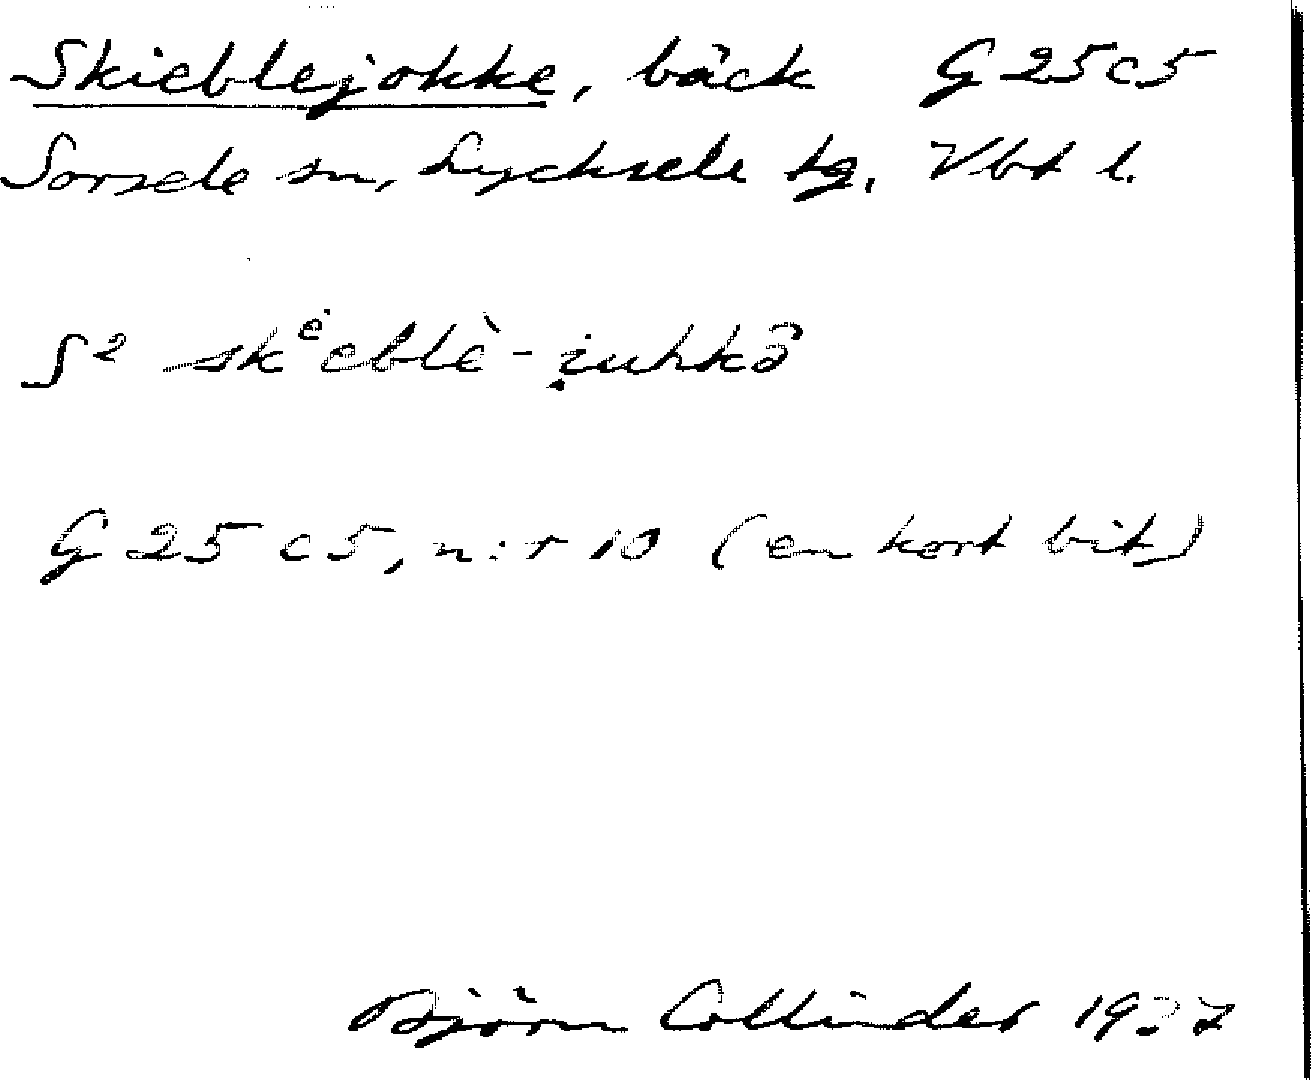 Skieblejokke, bäck G 25c5
Sorsele sn, Lycksele tg, Vbt l.
S² skᵉ̇eblè- i̯uhkə̑
G 25 c5, n:r 10 (en kort bit)
Björn Collinder 1937